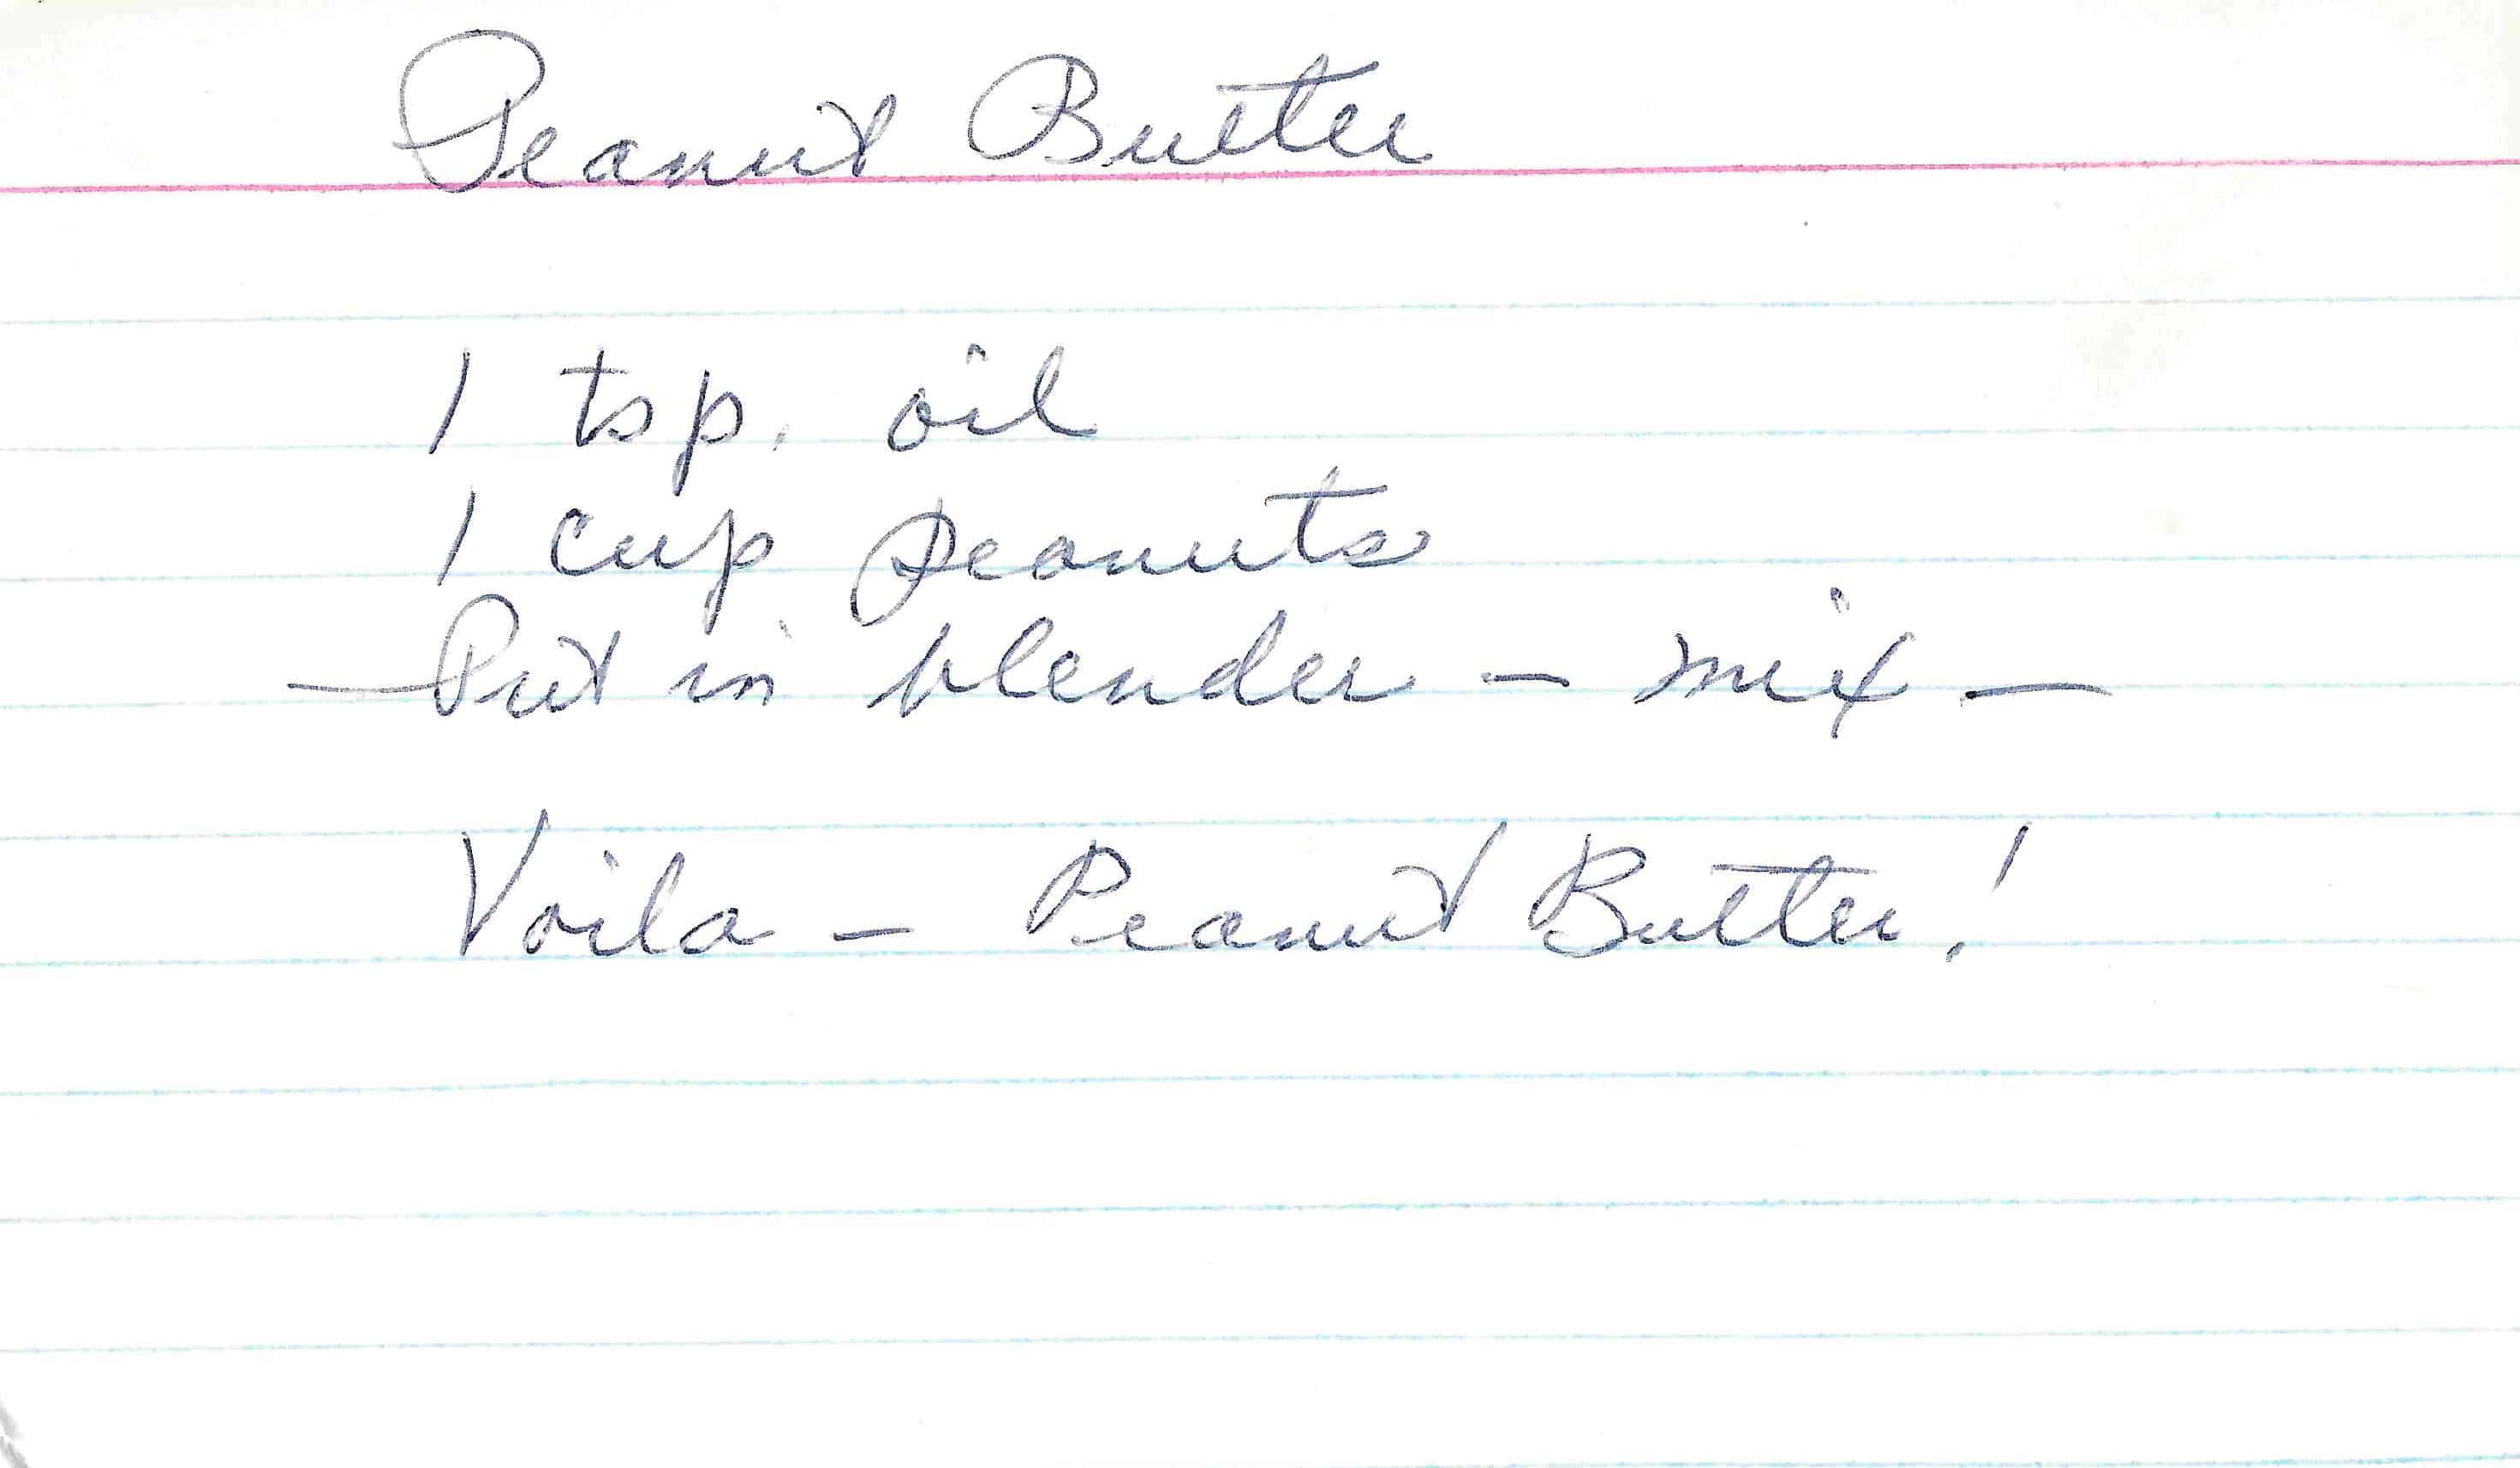 Peanut Butter
1 tsp. oil
1 cup peanuts
— Put in blender — mix —
Voila — Peanut Butter!